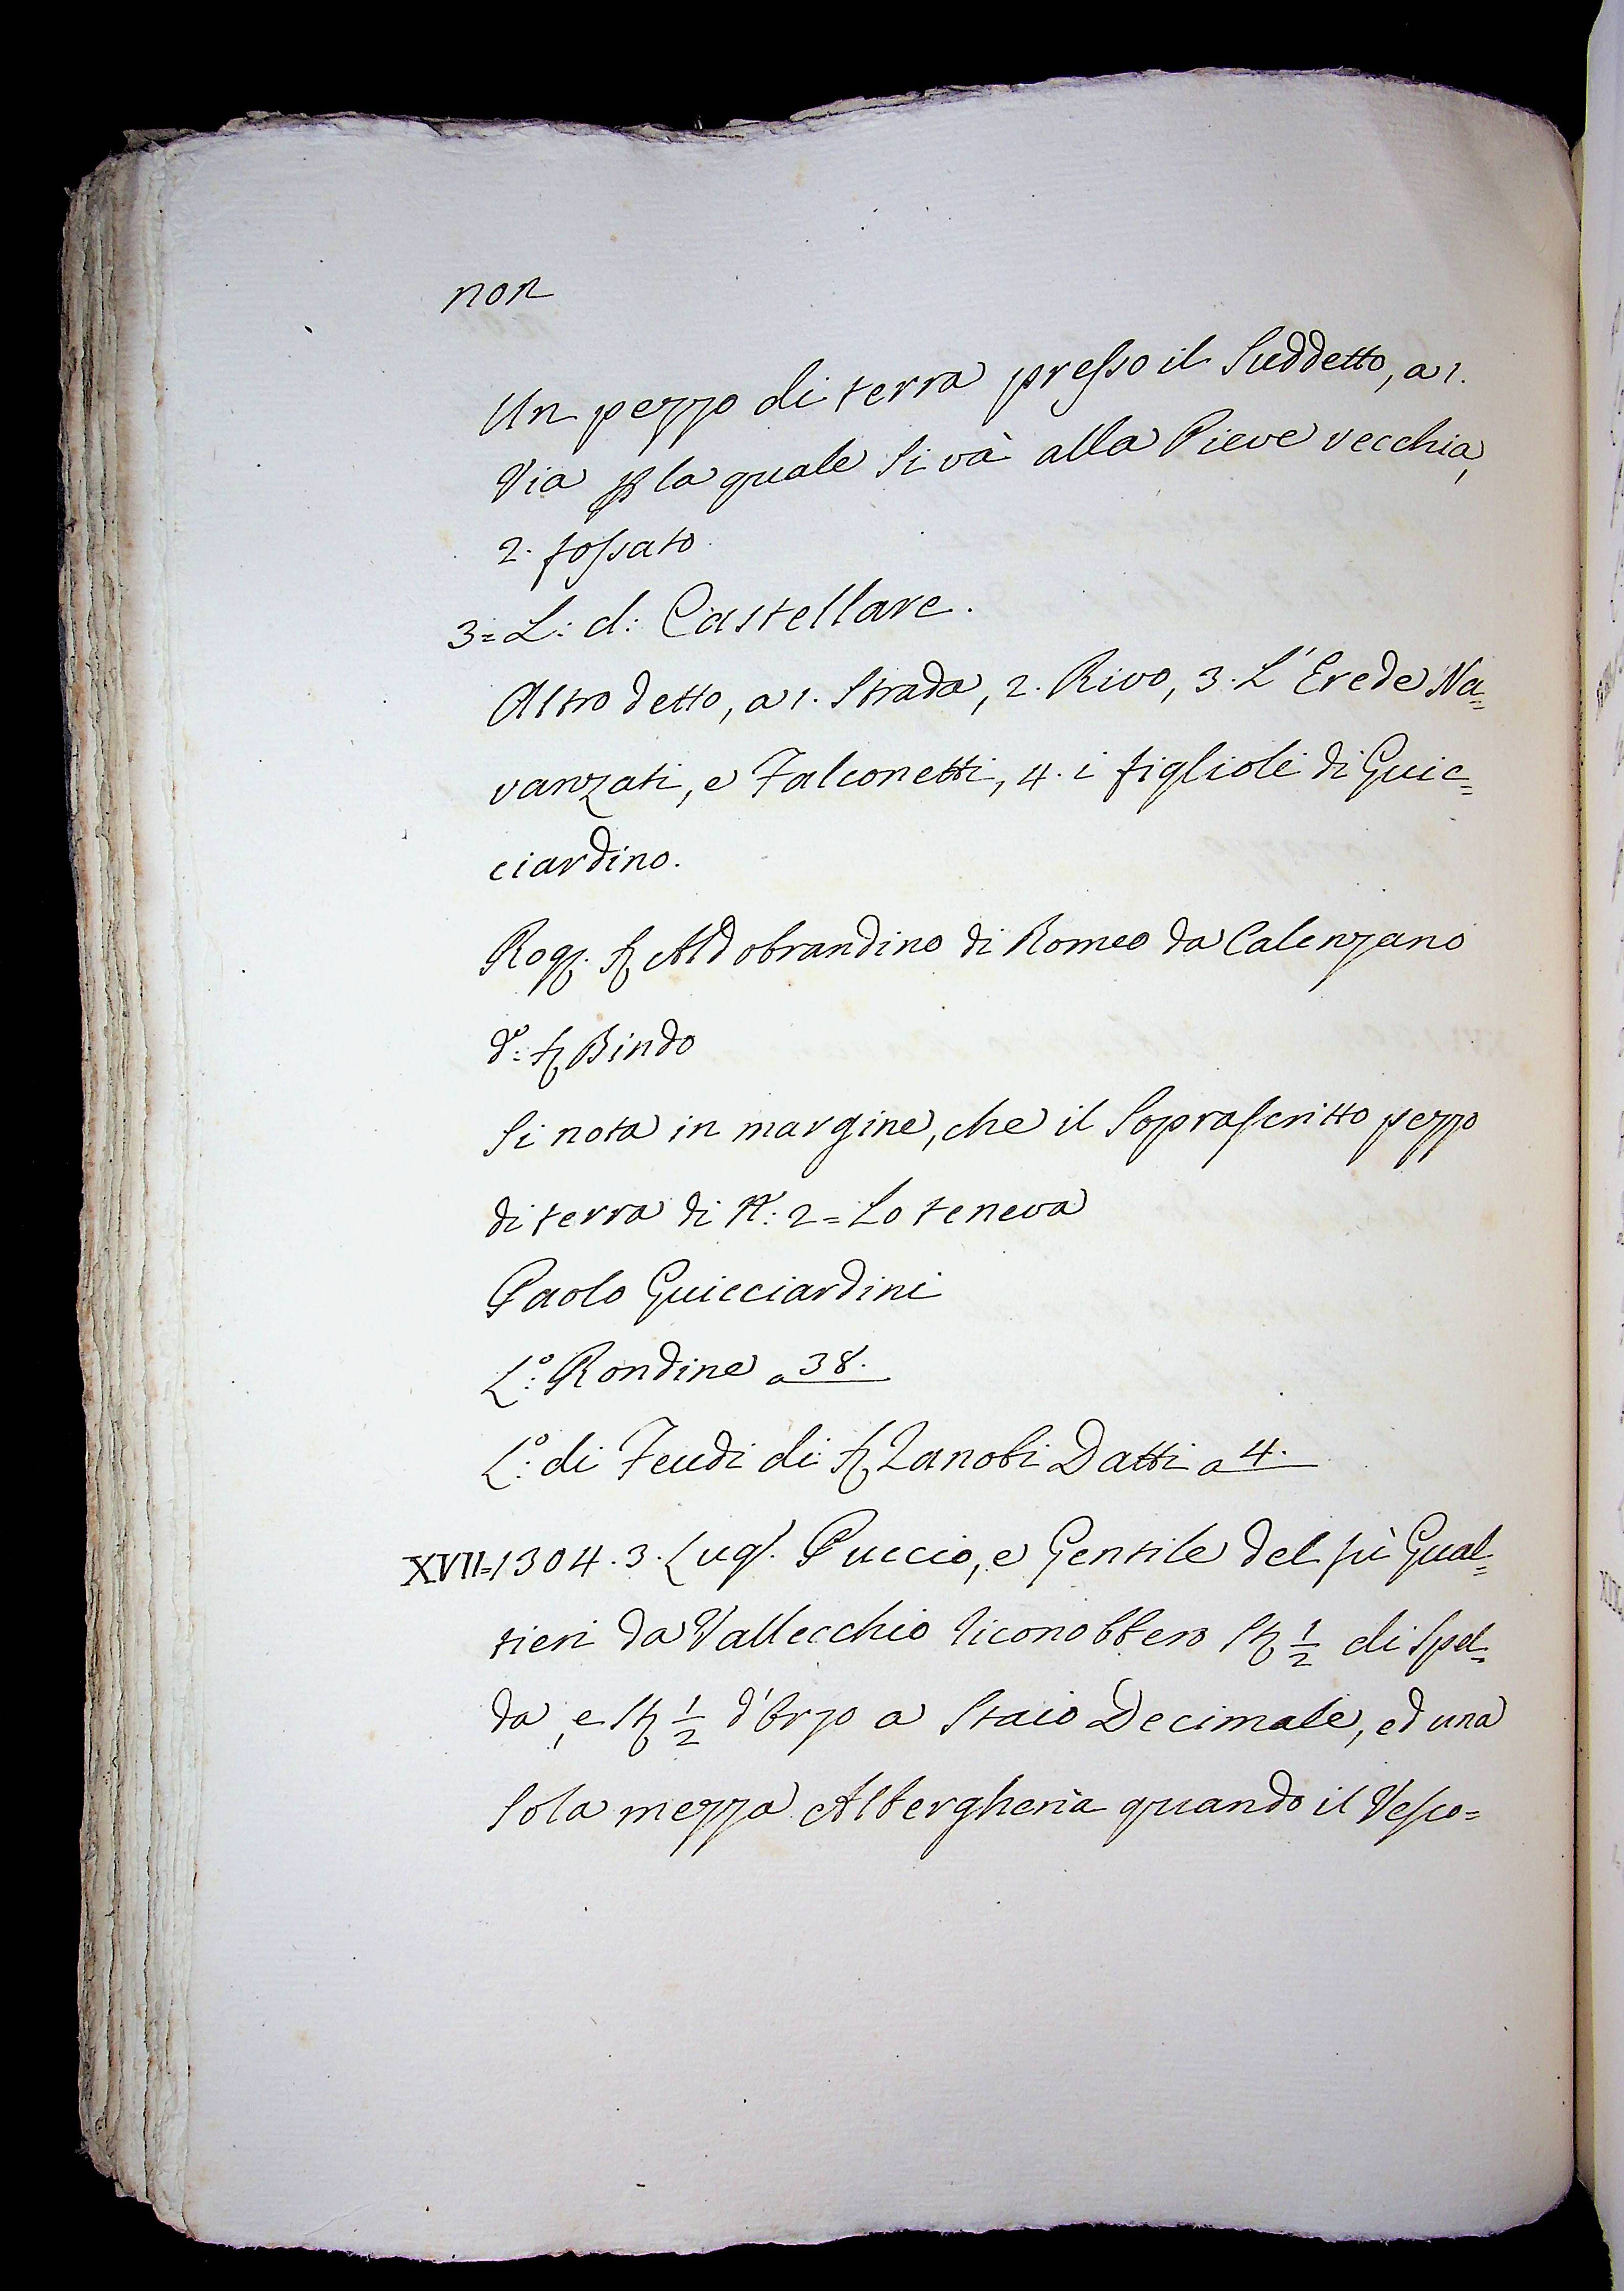 non
Un pezzo di terra presso il Suddetto, a 1.
Via p la quale si và alla Pieve vecchia,
2. fossato
3= L: d: Castellare.
Altro detto, a 1. Strada, 2. Rivo, 3. L'Erede Na=
vanzati, e Falconetti, 4. i figlioli di Guic=
ciardino.
Rog. S Aldobrandino di Romeo da Calenzano
d.º: S Bindo
Si nota in margine, che il Soprascritto pezzo
di terra di N: 2= Lo teneva
Paolo Guicciardini
L.º: Rondine a 38.
L.º: di Feudi di S Zanobi Datti a 4.
XVII=1304. 3. Lugl. Puccio, e Gentile del fù Gual=
tieri da Vallecchio riconobbero St ½ di Spel=
da, e St ½ d'Orzo a Staio Decimale, ed una
sola mezza Albergheria quando il Vesco=